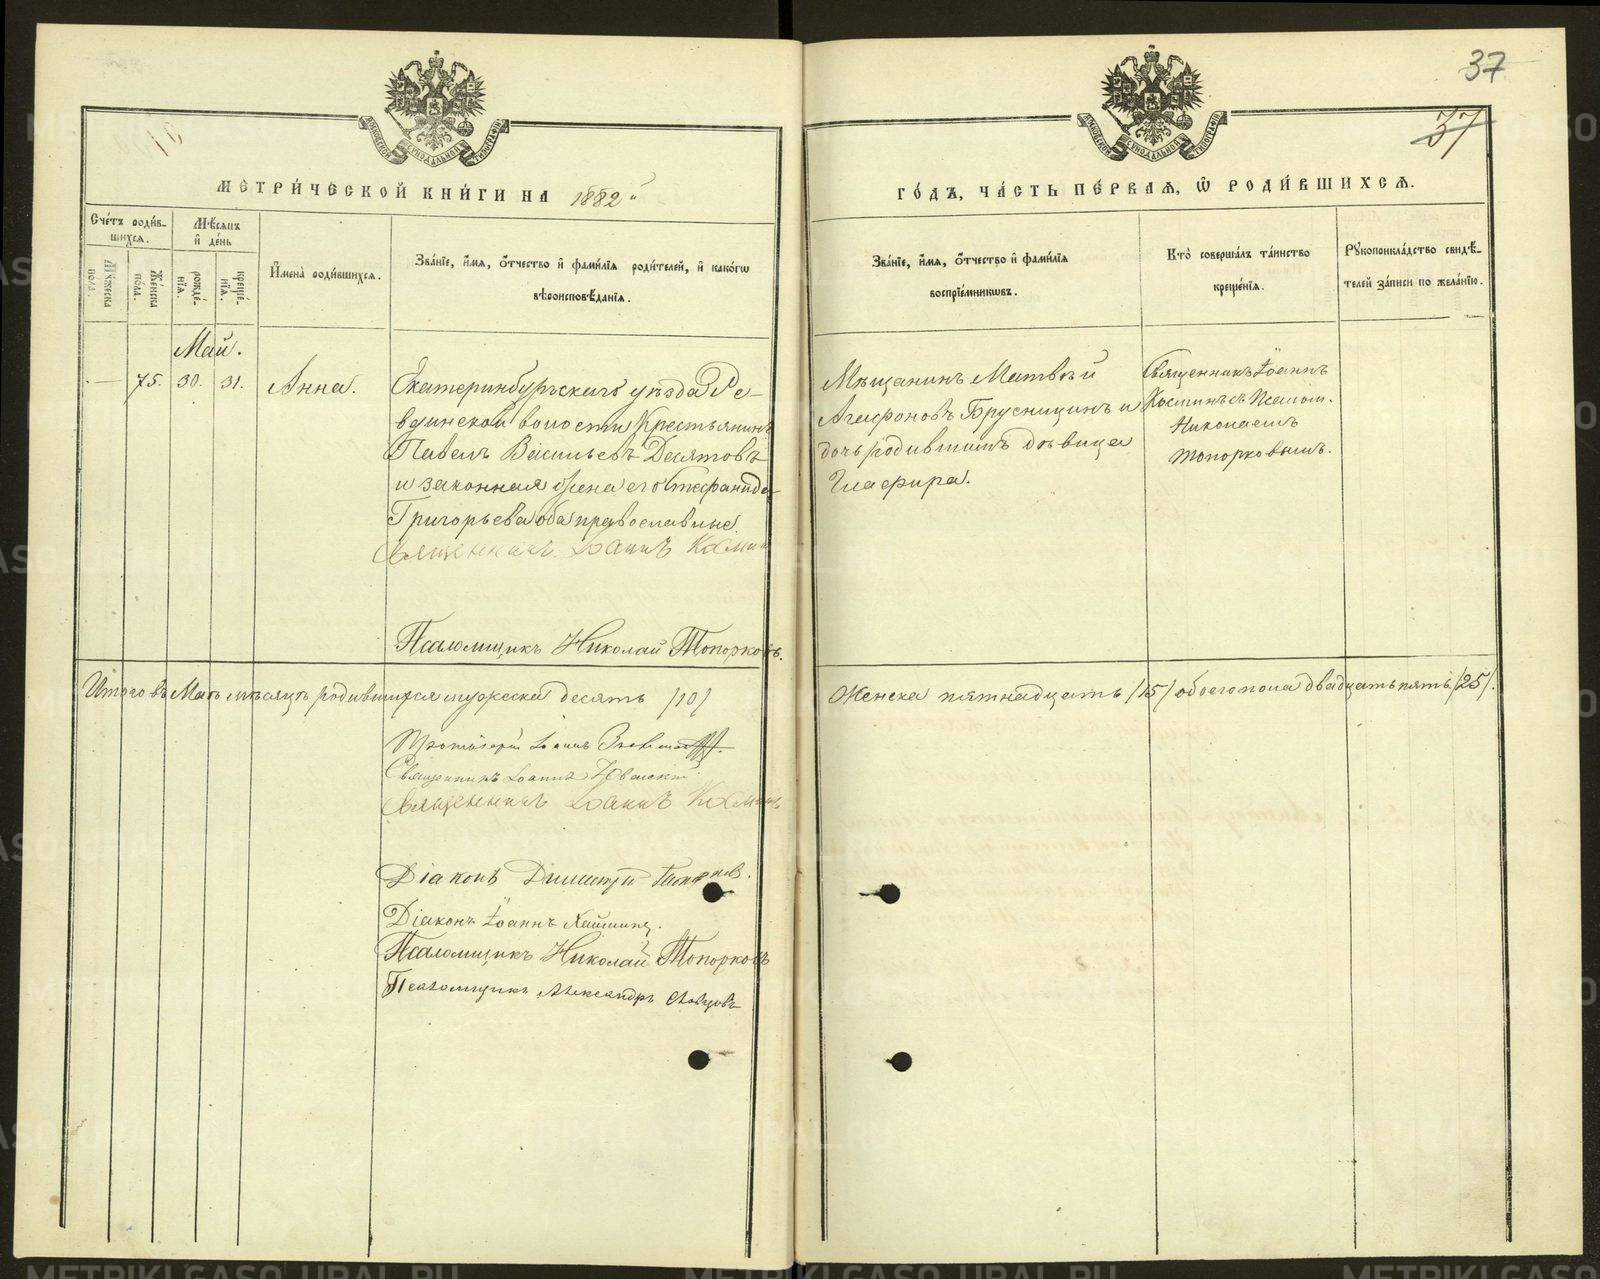 37
37
МОСКОВСКОЙ СѴНОДАЛЬНОЙ ТИПОГРАФІИ
МОСКОВСКОЙ СѴНОДАЛЬНОЙ ТИПОГРАФІИ
МЕТРИ́ЧЕСКОЙ КНИ́ГИ НА 1882й
ГО́ДЪ, ЧА́СТЬ ПЕ́РВАЯ, Ѿ РОДИ́ВШИХСЯ.
Сче́тъ роди́в-
шихся.
Мꙋжеска
пола.
Же́нска
по́ла.
Мѣ́сяцъ
и҆ де́нь
рожде́-
нїя.
креще́-
нїя.
И҆мена̀ роди́вшихся.
Зва́нїе, и҆́мя, ѻ҆́тчество и҆ фами́лїя роди́телей, и҆ како́гѡ
вѣроисповѣ́данїя.
Зва́нїе, и҆́мя, ѻ҆́тчество и҆ фами́лїя
воспрїе́мникѡвъ.
Кто̀ соверша́лъ та́инство
креще́нїя.
Рꙋкоприкла́дство свидѣ́-
телей за́писи по жела́нїю.
Май.
— 75. 30. 31. Анна.
Екатеринбургскаго уѣзда Ре-
вдинской волости Крестьянинъ
Павелъ Васильевъ Десятовъ
и законная жена его Стефанида
Григорьева оба православные
Священникъ Іоаннъ Космин
Псаломщикъ Николай Топорковъ.
Мѣщанинъ Матвѣй
Агафоновъ Брусницинъ и
дочь родившихъ дѣвица
Глафира.
Священникъ Іоаннъ
Косминъ съ Псалом.
Николаемъ
Топорковымъ.
Итого въ Маѣ мѣсяцѣ родившихся мужеска десять /10/
Женска пятнадцать /15/ обоего пола двадцать пять /25/.
Протоіерей Іоаннъ
Священникъ Іоаннъ
Священникъ Іоаннъ Космин
Діаконъ Димитрій
Діаконъ Іоаннъ
Псаломщикъ Николай Топорковъ
Псаломщикъ Александръ Словцовъ
METRIKI.GASO-URAL.RU